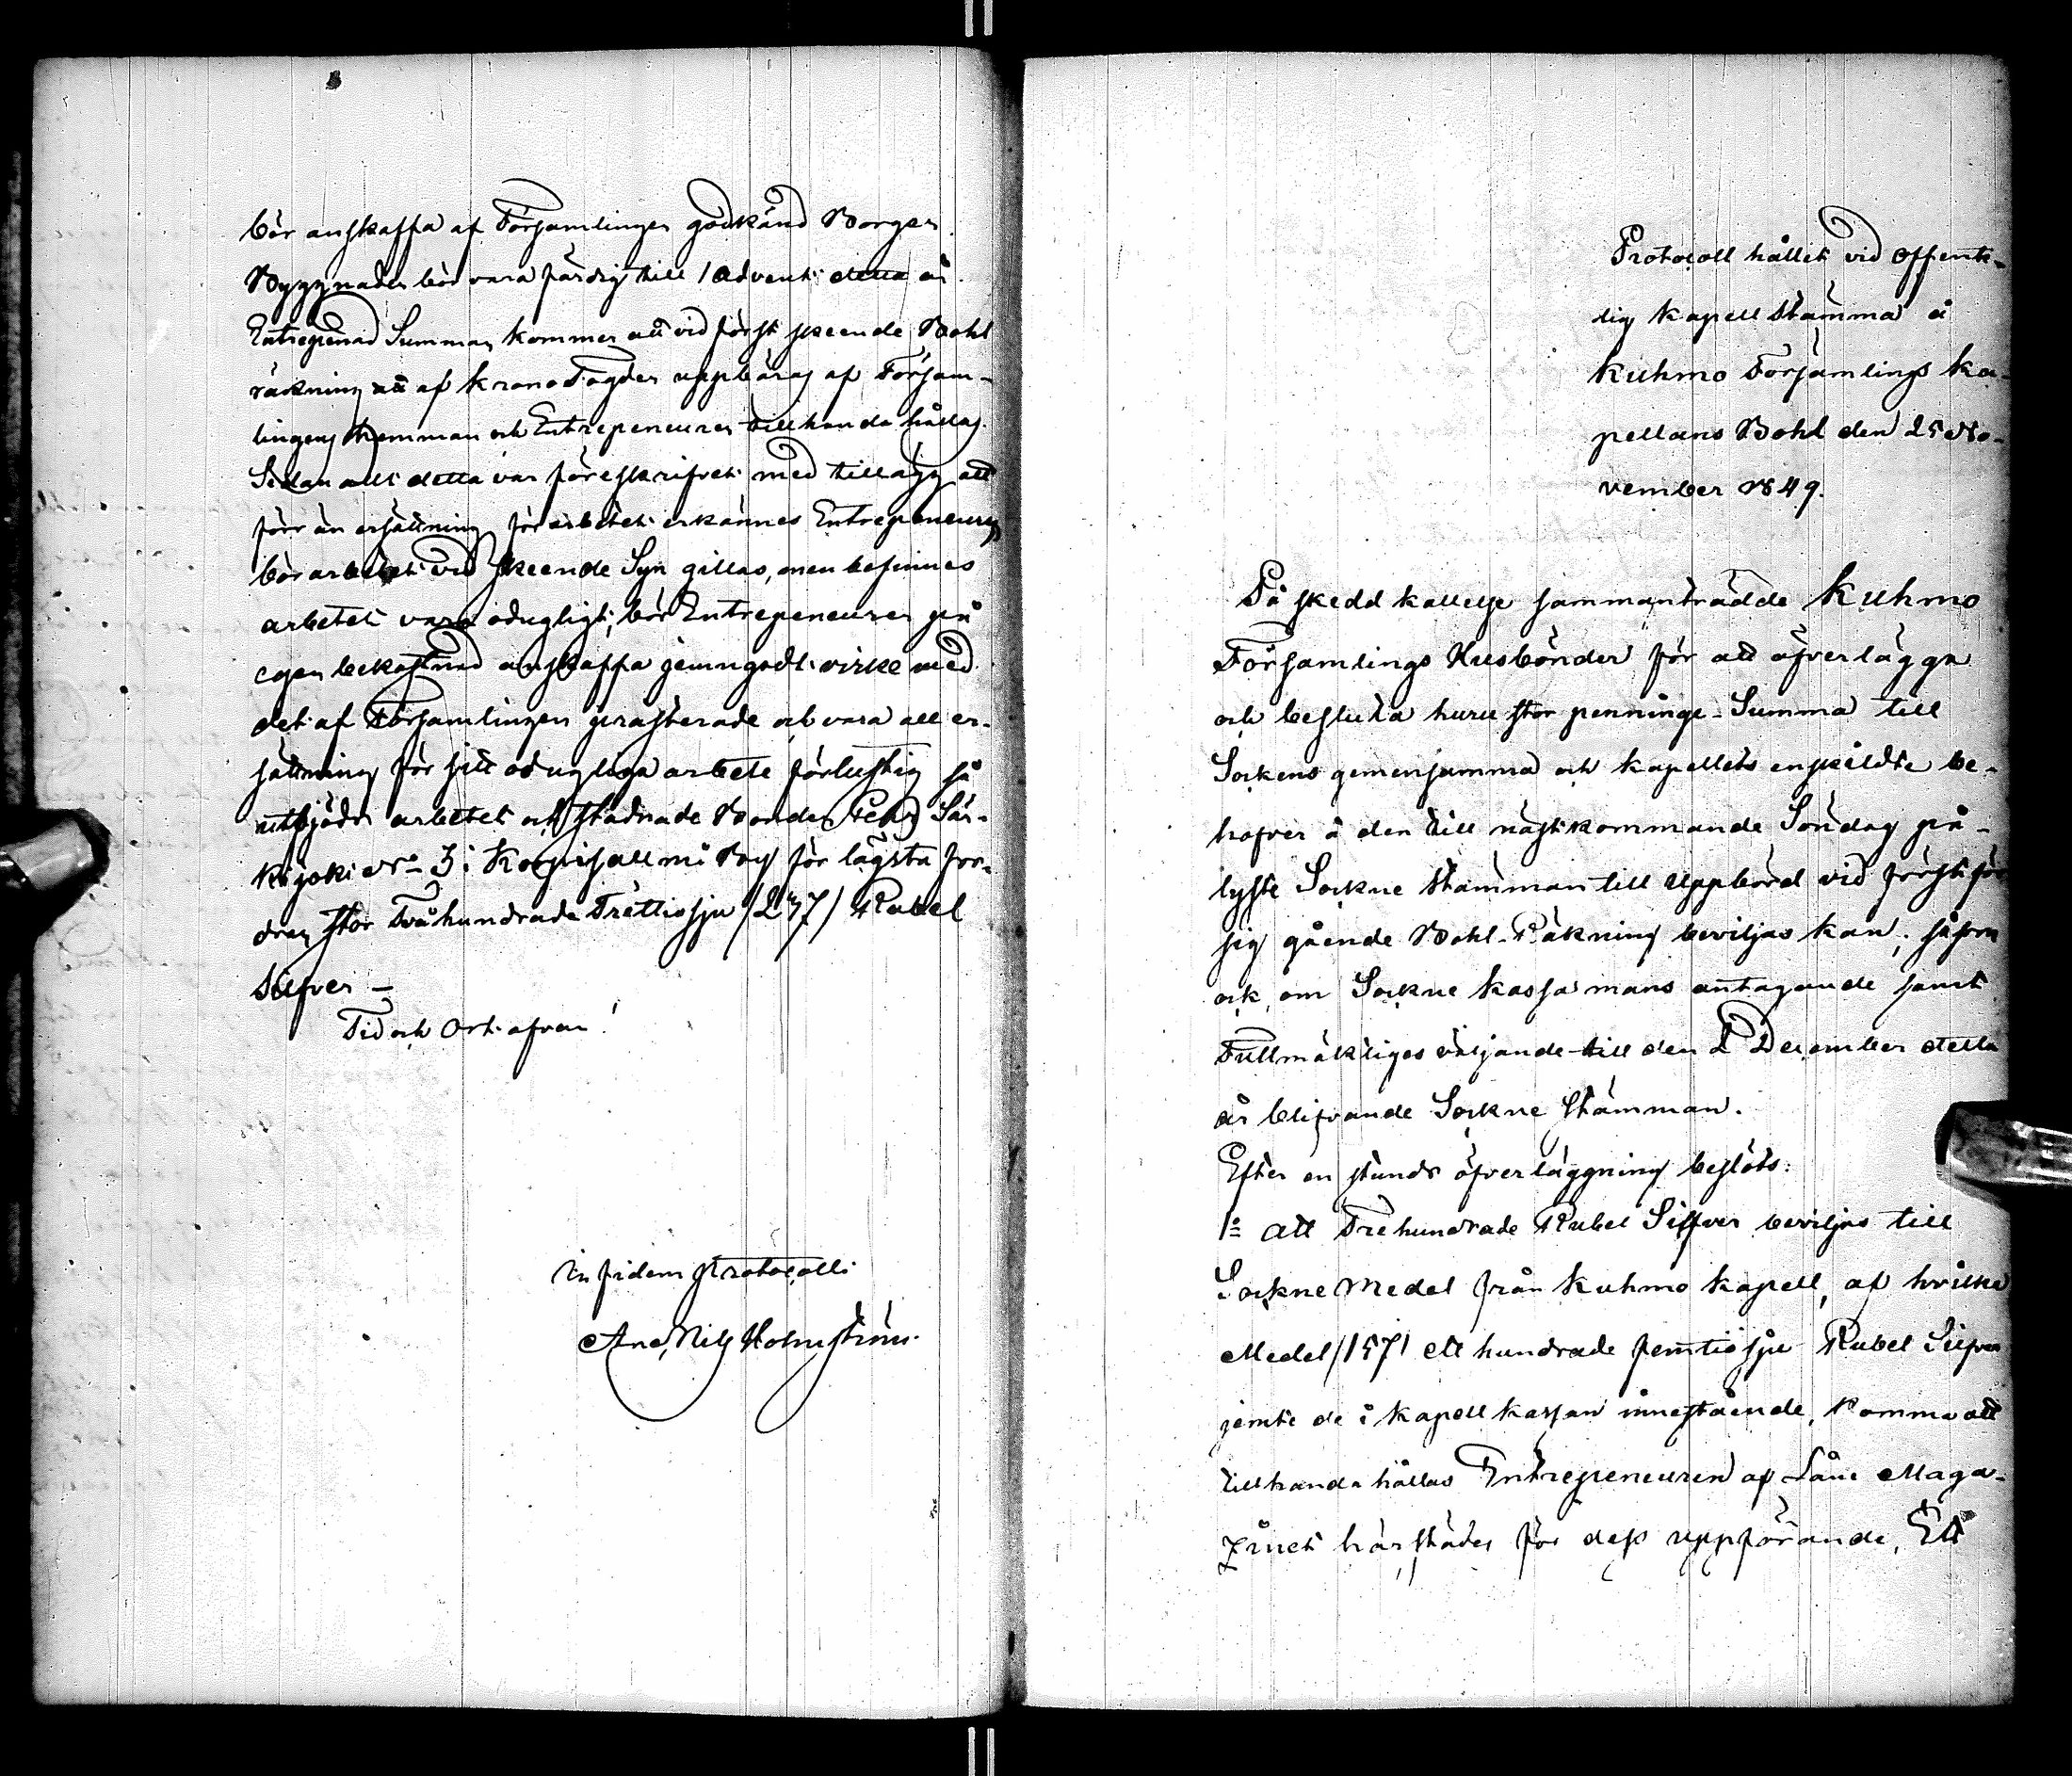 bör anskaffa af Församlingen godkänd Borgen.
Byggnaden bör vara färdig till 1 Advent detta år.
Entreprenad Summan kommer att vid först skeende Bohl
räkning af KronoFogden uppbäras af Försam-
lingens Hemman och Entrepeneuren tillhanda hållas.
Sedan allt detta var föreskrifvet med tillägg att
förr än ersättning för arbetet erkännes Entrepeneuren,
bör arbetet vid skeende Syn gillas, men befinnes
arbetet vara odugligt, bör Entrepeneuren på
egen bekostnad anskaffa jemngodt virke med
det af Församlingen presterade och vara all er-
sättning för sitt odugliga arbete förlustig så
utbjöds arbetet och stadnade Bonden Pehr
No 3 i Korpisalmi By för lägsta for-
dran stor Tvåhundrade Trettiosju /237/ Rubel
Silfver –
Tid och Ort ofvan!
In fidem Protocolli
And. Nils Holmström
Protocoll hållet vid offent-
lig Kapell Stämma å
Kuhmo Församlings Ka-
pellans Bohl den 25 No-
vember 1849.
På skedd kallelse sammanträdde Kuhmo
Församlings Husbönder för att öfverlägga
och besluta huru stor penninge-Summa till
Sockens gemensamma och Kapellets enskildte be-
hofver å den till nästkommande Söndag på-
lyste Sockne Stämman till Uppbörd vid först för
sig gående Bohl-Räkning beviljas kan; såsom
ock, om Sockne Kassa mans antagande samt
Fullmäktiges väljande till den 2 December detta
år blifvande Sockne Stämman.
Efter en stunds öfverläggning beslöts:
1o Att Trehundrade Rubel Silfver beviljas till
Sockne Medel från Kuhmo Kapell, af hvilka
Medel /157/ ett hundrade femtiosju Rubel Silfver
jemte de i Kapell kassan innestående, komma att
tillhanda hållas Entrepeneuren af Låne Maga-
zinet härstädes för dess uppförande, Ett